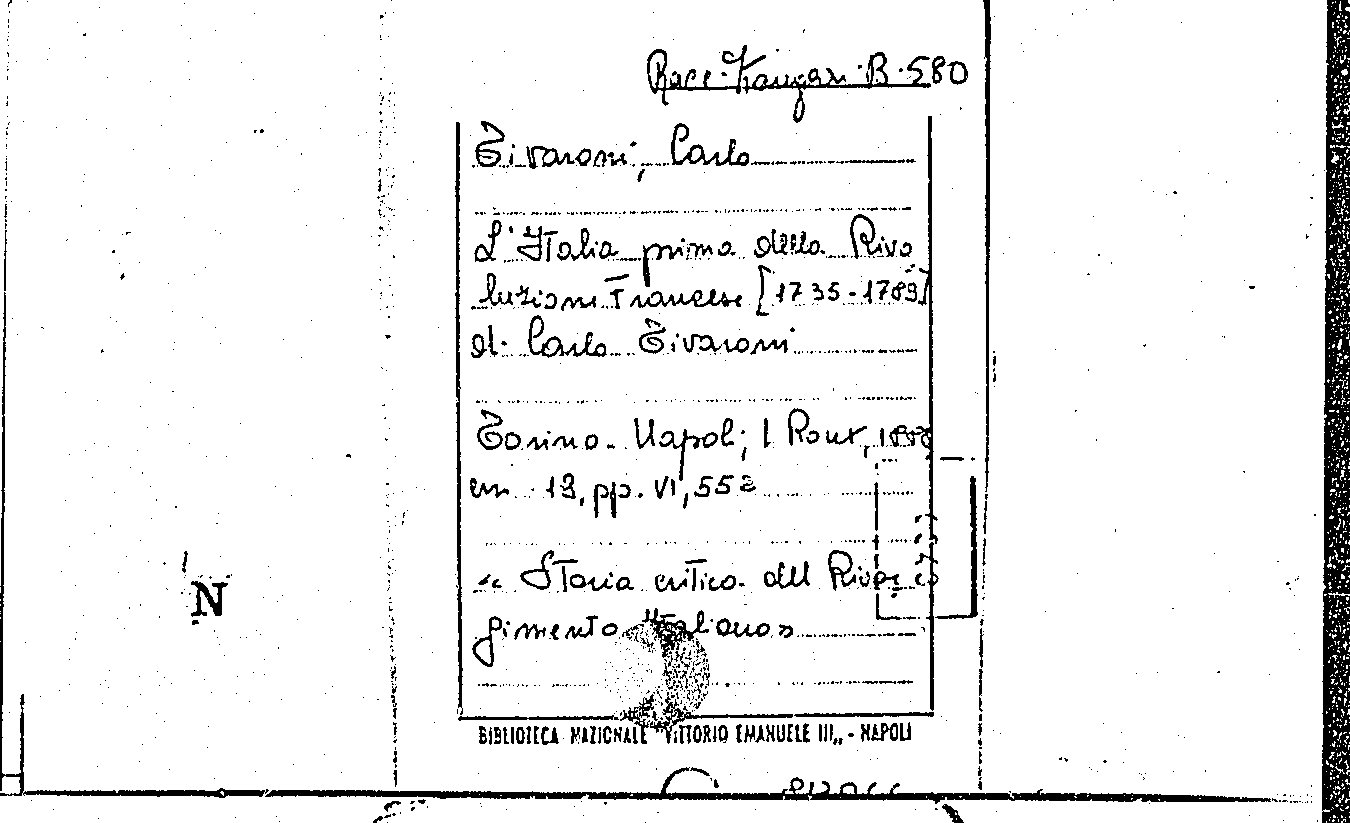 Racc. B. 580
Tivaroni, Carlo
L'Italia prima della Rivo
luzione Francese [1735-1789]
di Carlo Tivaroni
Torino-Napoli, L Roux, 1888
in 18, pp. VI, 552
« Storia critica del Risor
gimento Italiano»
N
BIBLIOTECA NAZIONALE "VITTORIO EMANUELE III„ - NAPOLI